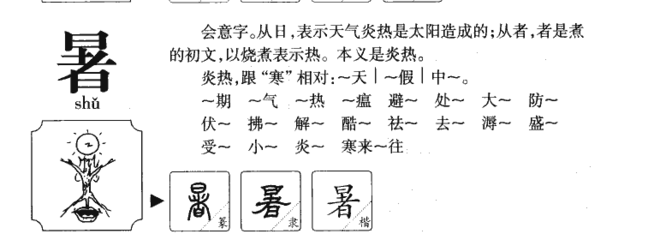 暑
shǔ
会意字。从日,表示天气炎热是太阳造成的;从者,者是煮
的初文,以烧煮表示热。本义是炎热。
炎热,跟“寒”相对:~天|~假|中~。
~期 ~气 ~热 ~瘟 避~ 处~ 大~ 防~
伏~ 拂~ 解~ 酷~ 祛~ 去~ 溽~ 盛~
受~ 小~ 炎~ 寒来~往
暑 篆 暑 隶 暑 楷